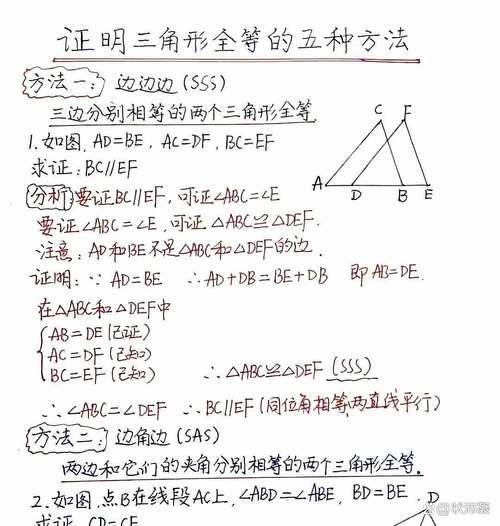 证明三角形全等的五种方法
方法一: 边边边(SSS)
三边分别相等的两个三角形全等
1.如图, AD=BE, AC=DF, BC=EF
求证:BC//EF
C F
A D B E
分析:要证BC//EF, 可证∠ABC=∠E
要证∠ABC=∠E, 可证△ABC≌△DEF.
注意: AD和BE不是△ABC和△DEF的边.
证明: ∵ AD=BE ∴AD+DB=BE+DB 即AB=DE.
在△ABC和△DEF中
AB=DE(已证)
AC=DF(已知)
BC=EF(已知) ∴△ABC≌△DEF(SSS)
∴∠ABC=∠DEF ∴BC//EF(同位角相等,两直线平行)
方法二: 边角边(SAS)
两边和它们的夹角分别相等的两个三角形全等.
2.如图,点B在线段AC上, ∠ABD=∠ABE, BD=BE.
D
求证 CD=CE